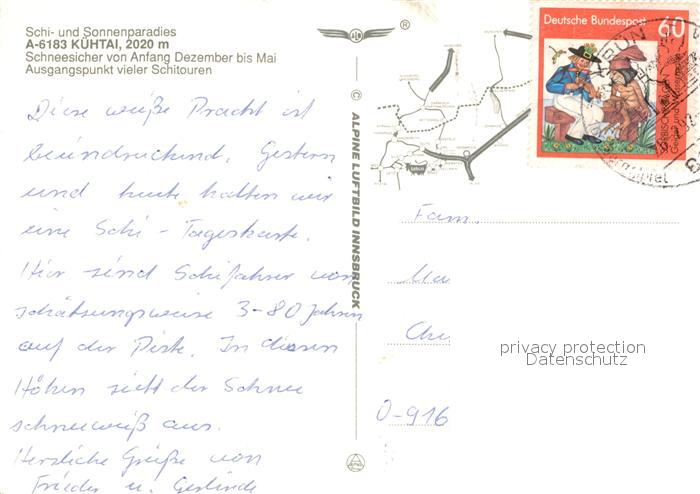 Schi- und Sonnenparadies
A-6183 KÜHTAI, 2020 m
Schneesicher von Anfang Dezember bis Mai
Ausgangspunkt vieler Schitouren
Diese weiße Pracht ist
beeindruckend. Gestern
und heute hatten wir
eine Schi-Tageskarte.
Hier sind Schifahrer von
schätsungsweise 3-80 Jahren
auf der Piste. In diesen
Höhen sieht der Schnee
schneeweiß aus.
Herzliche Grüße von
Frieder u. Gerlinde
© ALPINE LUFTBILD INNSBRUCK
®
Deutsche Bundespost 60
Fam.
O-916
privacy protection
Datenschutz